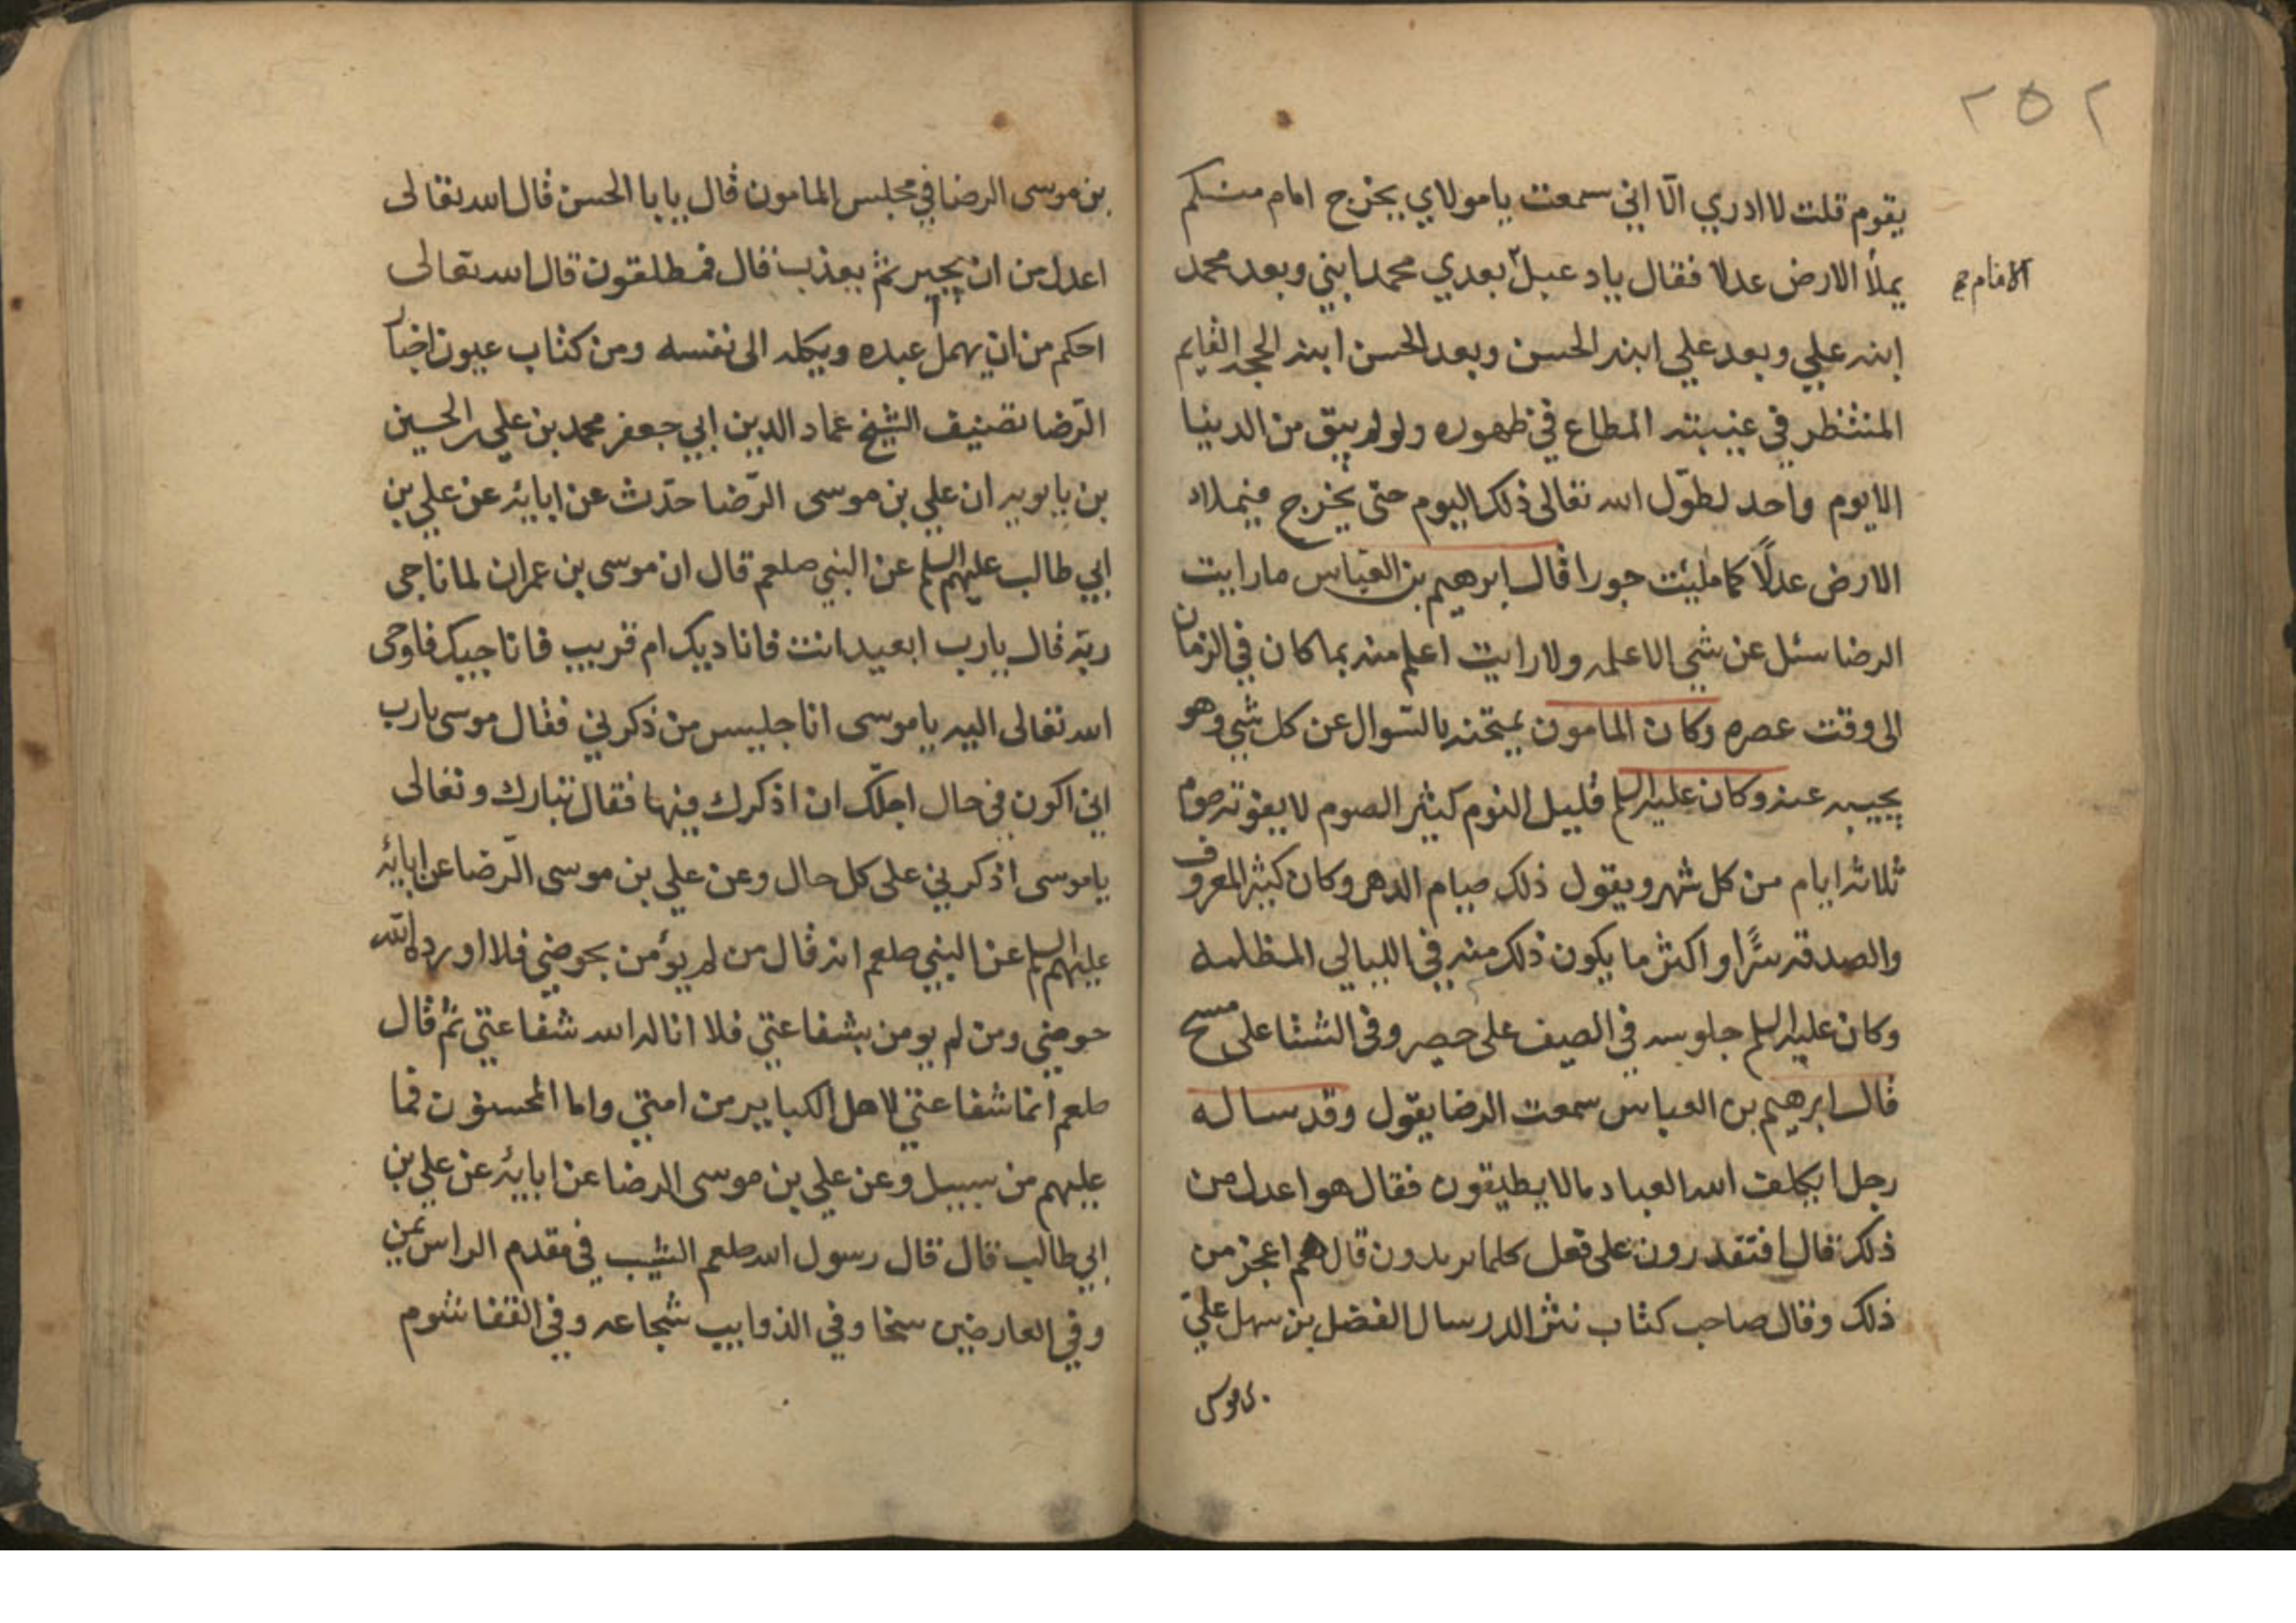 ٢٥٢
يقوم قلت لا ادري الّا اني سمعت يا مولاي يخرج امام منكم
يملأ الارض عدلا فقال يا دعبل بعدي محمد ابني وبعد محمد
الامام
ابنه علي وبعد علي ابنه الحسن وبعد الحسن ابنه الحجه القايم
المنتظر في غيبته المطاع في ظهوره ولو لم يبق من الدنيا
الا يوم واحد لطوّل الله تعالى ذلك اليوم حتى يخرج فيملاء
الارض عدلًا كما مليئت جورا قال ابرهيم بن العباس ما رايت
الرضا سئل عن شي الا علمه ولا رايت اعلم منه بما كان في الزمان
الى وقت عصره وكان المامون يمتحنه بالسّوال عن كل شي وهو
يجيبه عنه وكان عليه السلم قليل النوم كيثر الصوم لا يفوته صوم
ثلاثه ايام من كل شهر ويقول ذلك صيام الدهر وكان كيثر المعروف
والصدقه سرًّا واكثر ما يكون ذلك منه في الليالي المظلمه
وكان عليه السلم جلوسه في الصيف على حصير وفي الشتا على مسح
قال ابرهيم بن العباس سمعت الرضا يقول وقد ساله
رجل ايكلف الله العباد مالا يطيقون فقال هو اعدل من
ذلك قال افتقدرون على فعل كلما يريدون قال هم اعجز من
ذلك وقال صاحب كتاب نثر الدر سال الفضل بن سهل علي
بن موسى
بن موسى الرضا في مجلس المامون قال يا با الحسن قال الله تعالى
اعدل من ان يجبر ثم يعذب قال فمطلقون قال الله تعالى
احكم من ان يهمل عبده ويكله الى نفسه ومن كتاب عيون اخبار
الرّضا تصنيف الشيخ عماد الدين ابي جعفر محمد بن علي بن الحسين
بن بابويه ان علي بن موسى الرّضا حدّث عن ابايئه عن علي بن
ابي طالب عليهم السلم عن النبي صلعم قال ان موسى بن عمران لما ناجى
ربّه قال يا رب ابعيد انت فاناديك ام قريب فاناجيك فاوحى
الله تعالى اليه يا موسى انا جليس من ذكرني فقال موسى يا رب
اني اكون في حال اجلّك ان اذكرك فيها فقال تبارك وتعالى
يا موسى اذكرني على كل حال وعن علي بن موسى الرّضا عن ابائه
عليهم السلم عن النبي صلعم انه قال من لم يؤمن بحوضي فلا اورده الله
حوضي ومن لم يومن بشفاعتي فلا اناله الله شفاعتي ثم قال
صلعم انما شفاعتي لاهل الكبايير من امتي واما المحسنون فما
عليهم من سبيل وعن علي بن موسى الرضا عن ابايئه عن علي بن
ابي طالب قال قال رسول الله صلعم الشيب في مقدم الراس يمن
وفي العارضين سخا وفي الذوايب شجاعه وفي القفا شوم